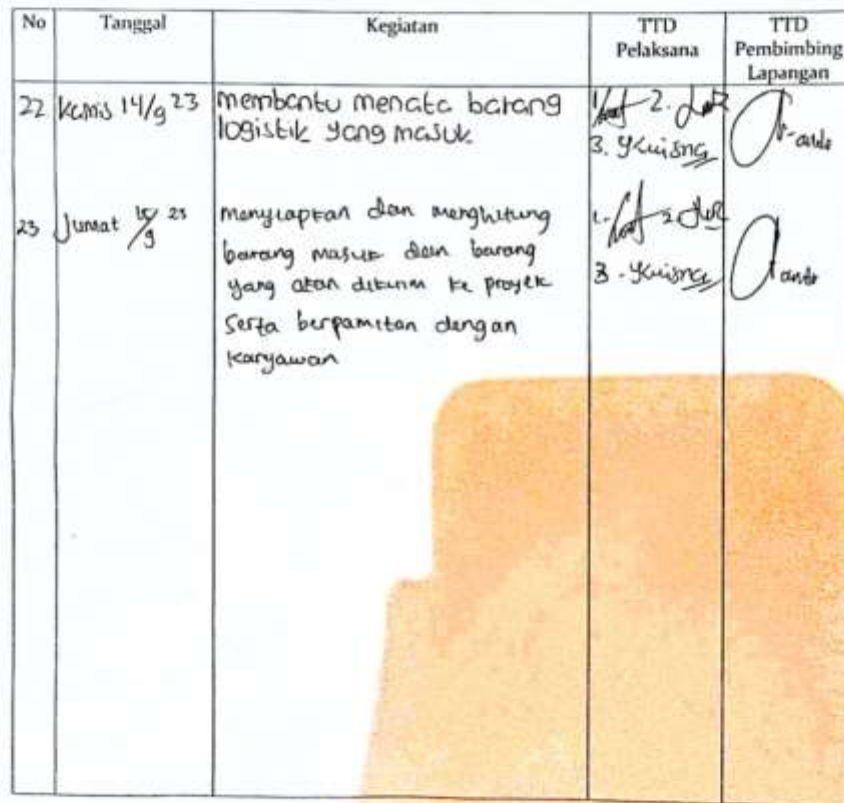 No Tanggal Kegiatan TTD Pelaksana TTD Pembimbing Lapangan
22 Kamis 14/9 23 membantu menata barang
logistik yang masuk.
1. 2.
3. Ykuisna
23 Jumat 15/9 23 menyiapkan dan menghitung
barang masuk dan barang
yang akan dikirim ke proyek
serta berpamitan dengan
karyawan
1. 2.
3. Ykuisna